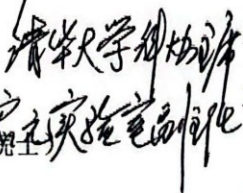 清华大学科协主席
实验室副主任